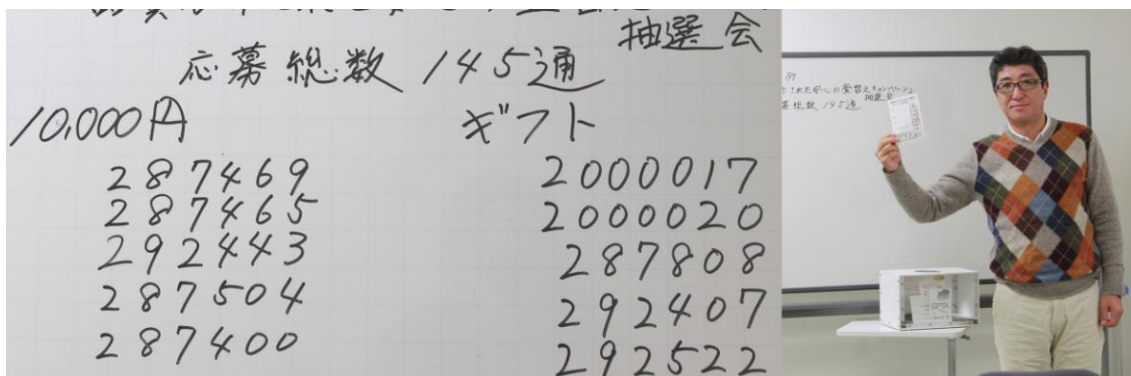 抽選会
応募総数 145通
10,000円
287469
287465
292443
287504
287400
ギフト
2000017
2000020
287808
292407
292522
抽選会
募総数 145通